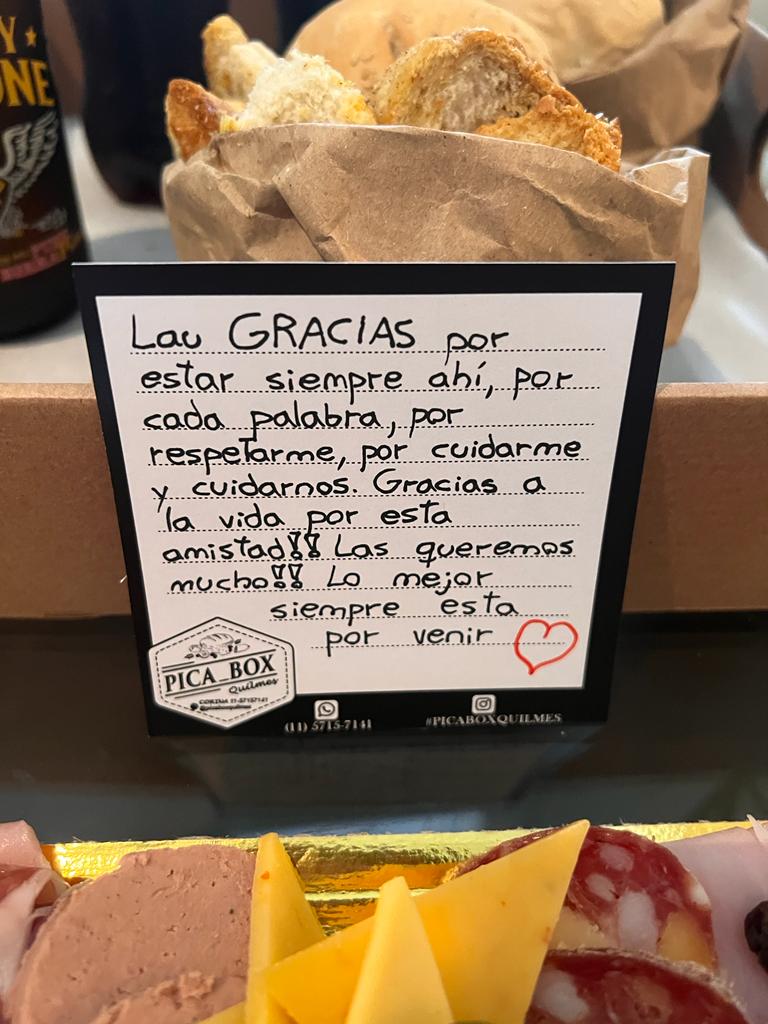 Y
ONE
Lau GRACIAS por
estar siempre ahí, por
cada palabra, por
respetarme, por cuidarme
y cuidarnos. Gracias a
la vida por esta
amistad!! Las queremos
mucho!! Lo mejor
siempre esta
por venir
PICA_BOX
Quilmes
CORINA 11-57157141
@picaboxquilmes
(11) 5715-7141
#PICABOXQUILMES